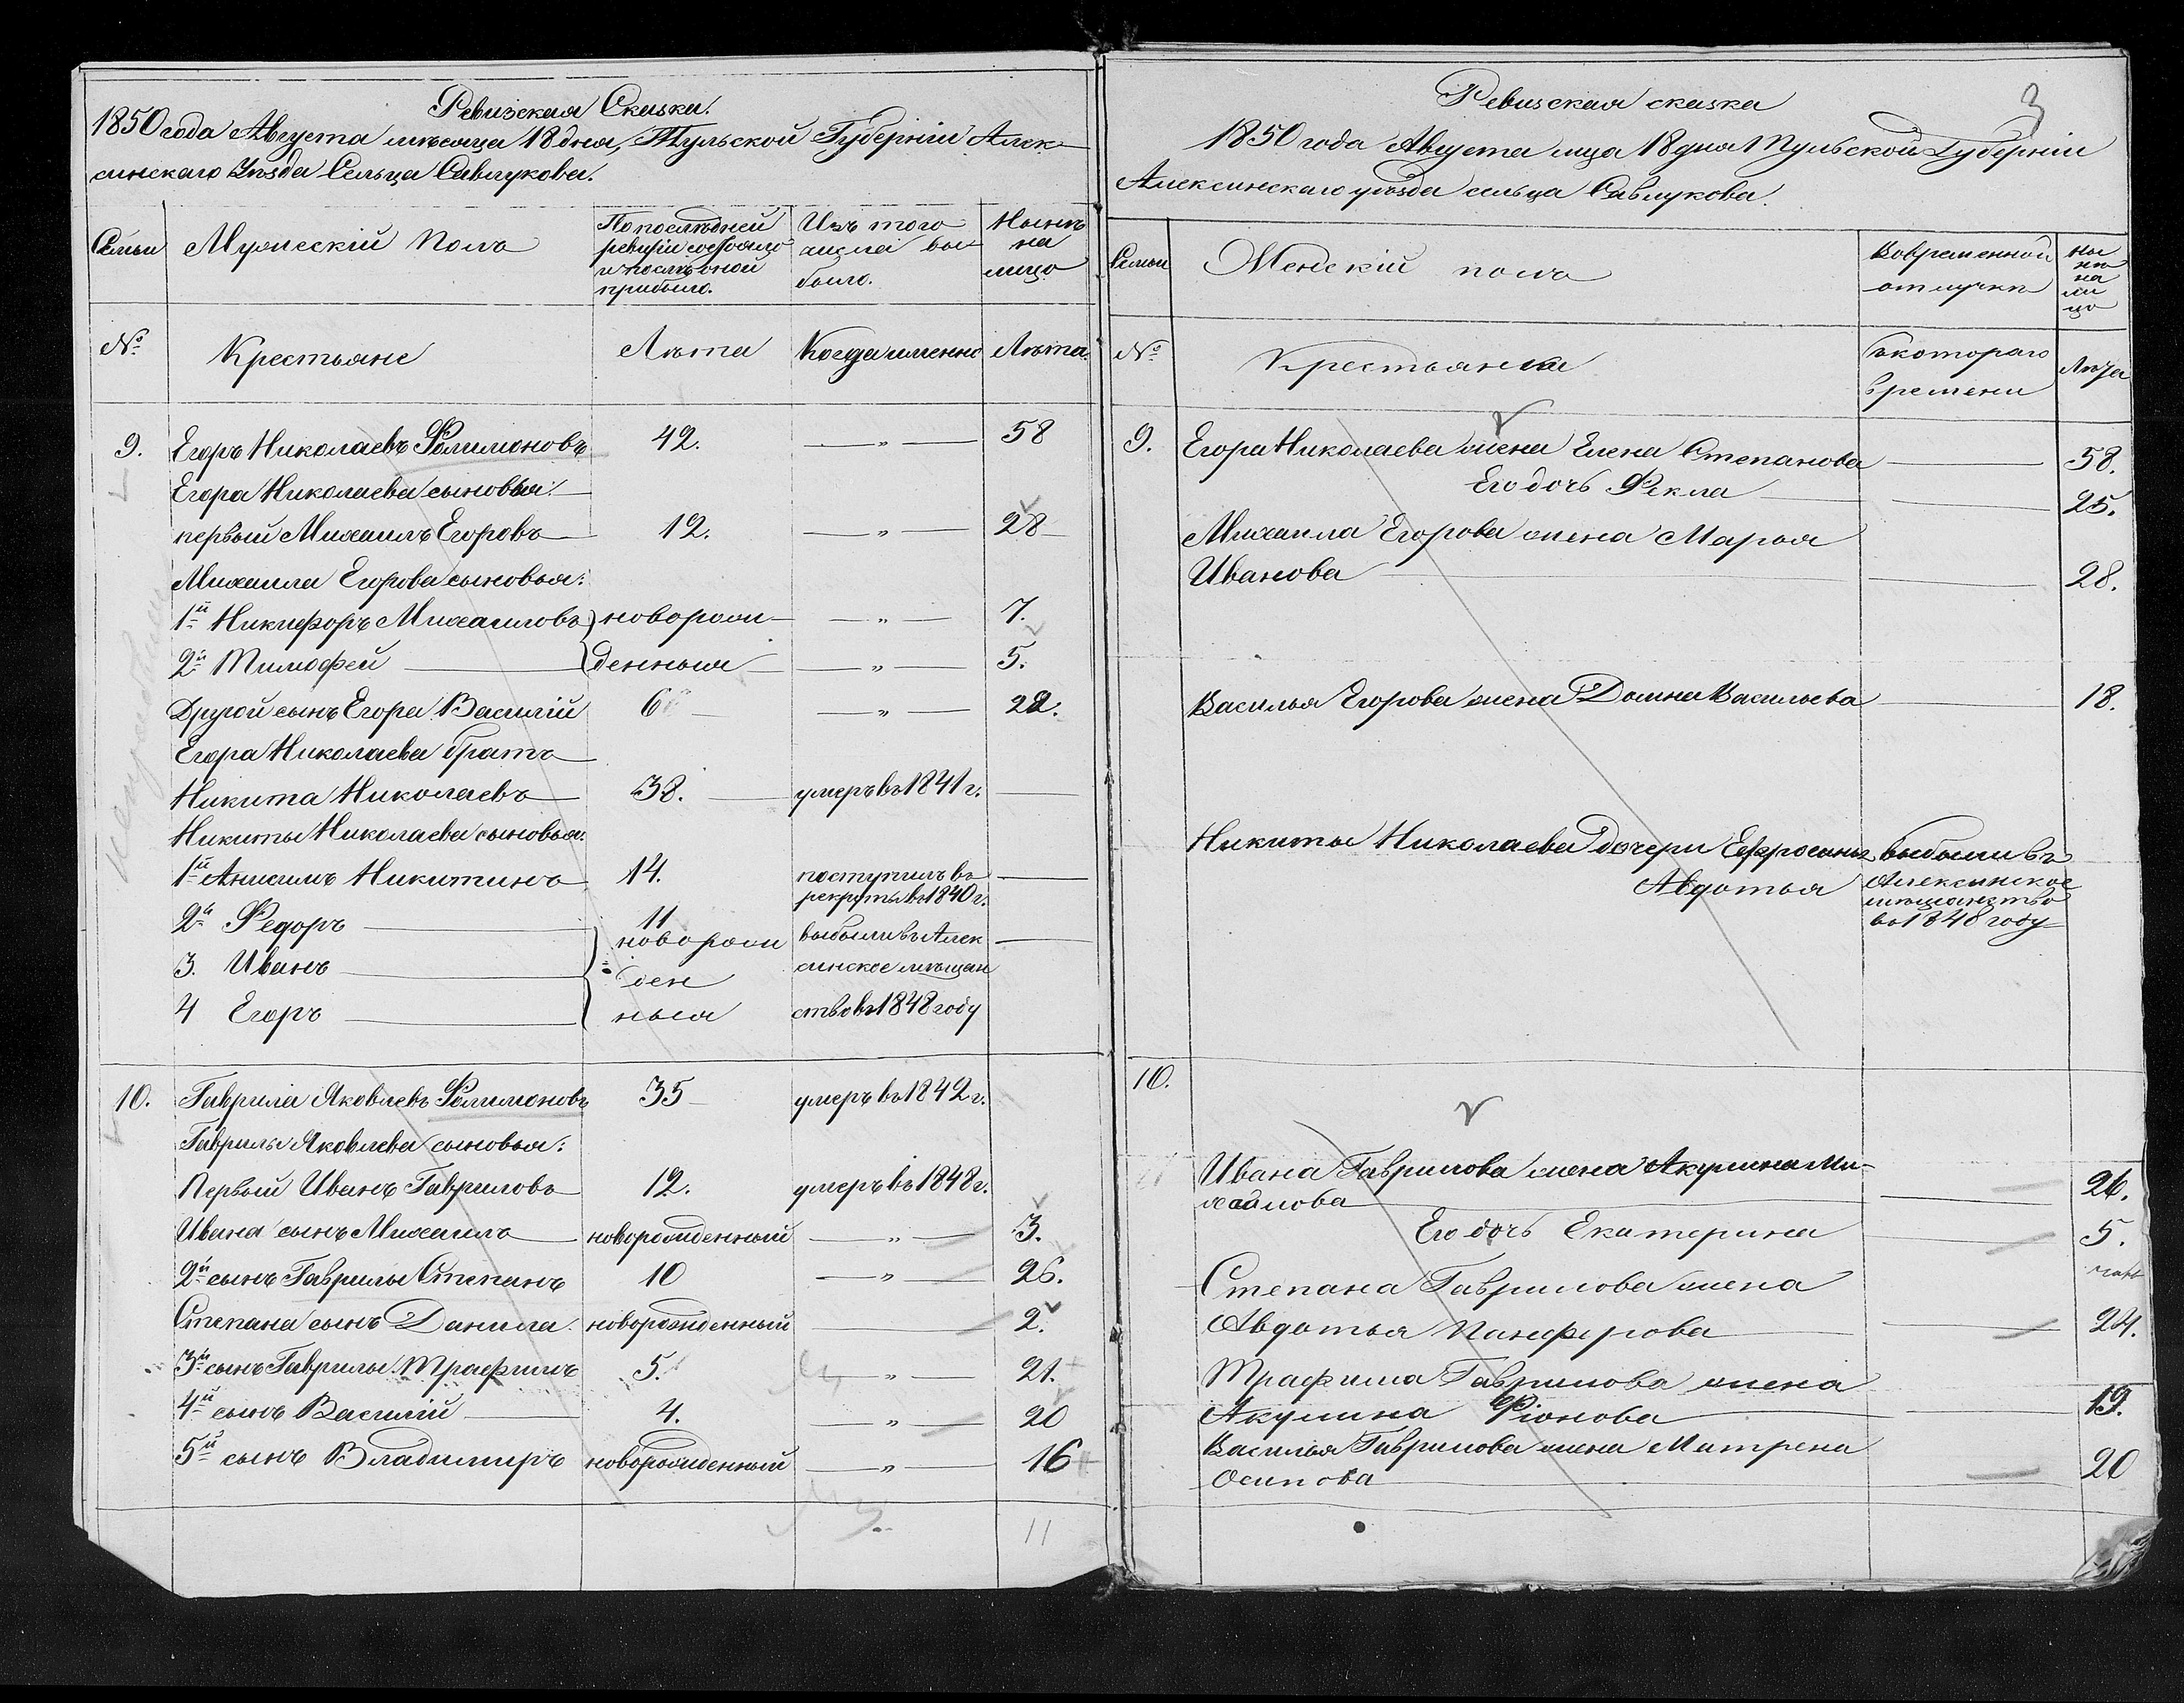 Ревизская Сказка.
1850 года Августа мѣсяца 18 дня, Тульской Губерніи Алек-
синскаго Уѣзда Сельца Савлукова.
Семьи
Мужескій Полъ
По послѣдней
ревизіи состояло
и послѣ оной
прибыло.
Изъ того
числа вы-
было.
Нынѣ
на
лицо
№
Крестьяне
Лѣта
Когда именно
Лѣта.
9. Егоръ Николаевъ Филимоновъ 42. — „ — 58
Егора Николаева сыновья:
первый Михаилъ Егоровъ 12. — „ — 28
Михаила Егорова сыновья:
1й Никифоръ Михаиловъ новорож- — „ — 7.
2й Тимофей денныя — „ — 5.
Другой сынъ Егора Василій 6 — „ — 22.
Егора Николаева братъ
Никита Николаевъ 38. умеръ въ 1841 г. —
Никиты Николаева сыновья:
1й Анисимъ Никитинъ 14. поступилъ въ —
рекруты въ 1840 г.
2й Федоръ 11 выбыли въ Алек —
новорож
3. Иванъ ден синское мѣщан
4 Егоръ ныя ство въ 1848 году
10. Гаврила Яковлевъ Филимоновъ 35 умеръ въ 1842 г.
Гаврилы Яковлева сыновья:
Первый Иванъ Гавриловъ 12. умеръ въ 1848 г.
Ивана сынъ Михаилъ новорожденный — „ — 3.
2й сынъ Гаврилы Степанъ 10 — „ — 26.
Степана сынъ Данила новорожденный — 2.
3й сынъ Гаврилы Трафимъ 5. — „ — 21.
4й сынъ Василій 4. — „ — 20
5й сынъ Владимиръ новорожденный — „ — 16
11
3
Ревизская сказка
1850 года Августа мца 18 дня Тульской Губерніи
Алексинскаго уѣзда сельца Савлукова.
Семьи
Женскій полъ
Вовременной
отлучкѣ
Ны
нѣ
на
ли
цо
№
Крестьянки
Съкотораго
времени
Лѣта
9. Егора Николаева жена Елена Степанова — 58.
Его дочь Фекла — 25.
Михаила Егорова жена Марья
Иванова — 28.
Василья Егорова жена Домна Васильева — 18.
Никиты Николаева дочери Ефросинья выбыли въ
Авдотья Алексинское
мѣщанство
въ 1848 году
10.
Ивана Гаврилова жена Акулина Ми-
хайлова — 26.
Его дочь Екатерина — 5.
Степана Гаврилова жена
Авдотья Панферова — 24.
Трафима Гаврилова жена
Акулина Фионова — 19.
Василья Гаврилова жена Матрена
Осипова — 20